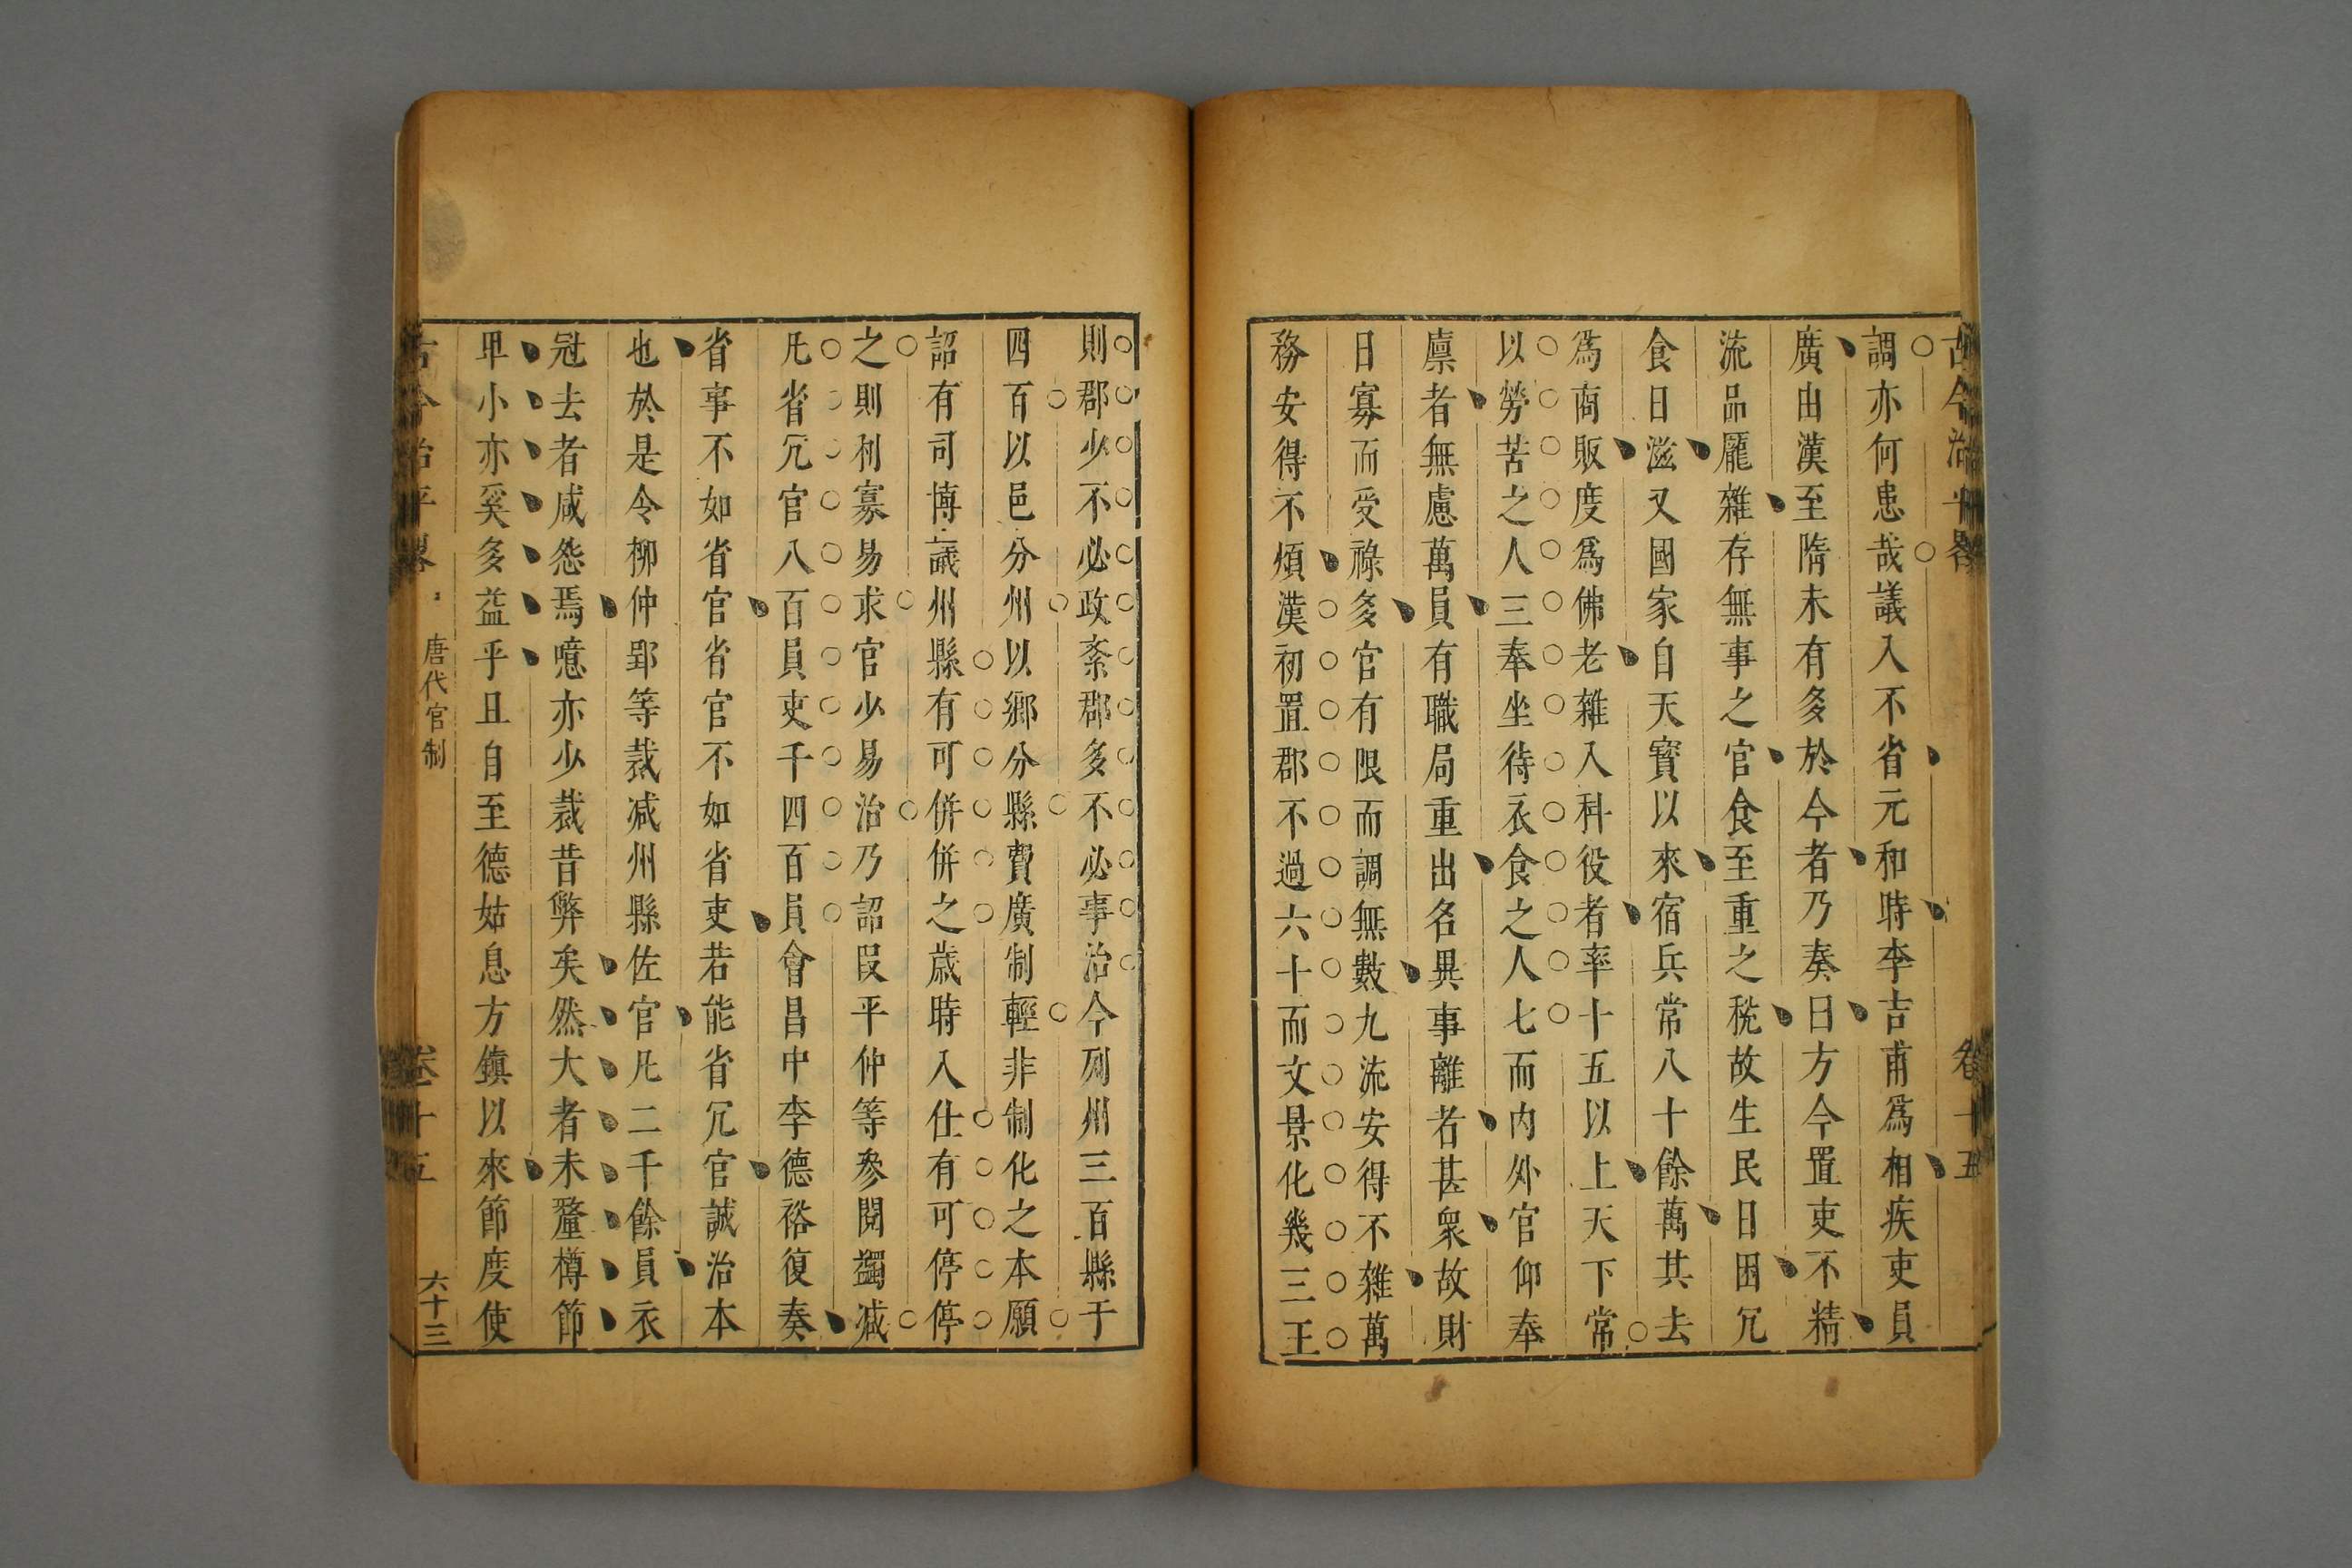 古今治平畧
卷十五
調亦何患哉議入不省元和時李吉甫爲相疾吏員
廣由漢至隋未有多於今者乃奏曰方今置吏不精
流品厖雜存無事之官食至重之稅故生民日困冗
食日滋又國家自天寳以來宿兵常八十餘萬其去
爲商販度爲佛老雜入科役者率十五以上天下常
以勞苦之人三奉坐待衣食之人七而内外官仰奉
廪者無慮萬員有職局重出名異事離者甚衆故財
日寡而受祿多官有限而調無數九流安得不雜萬
務安得不煩漢初置郡不過六十而文景化幾三王
則郡少不必政紊郡多不必事治今列州三百縣于
四百以邑分州以鄉分縣費廣制輕非制化之本願
詔有司博議州縣有可併併之歲時入仕有可停停
之則利寡易求官少易治乃詔叚平仲等參閱蠲减
凡省冗官八百員吏千四百員會昌中李德裕復奏
省事不如省官省官不如省吏若能省冗官誠治本
也於是令柳仲郢等裁减州縣佐官凡二千餘員衣
冠去者咸怨焉噫亦少裁昔弊矣然大者未釐樽節
卑小亦奚多益乎且自至德姑息方鎮以來節度使
古今治平畧
唐代官制
卷十五
六十三